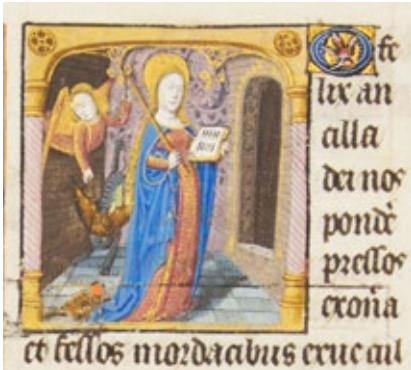 O fe
lix an
cilla
dei nos
ponde᷑
pressos
exon̄a
et fessos mordacibus erue cui